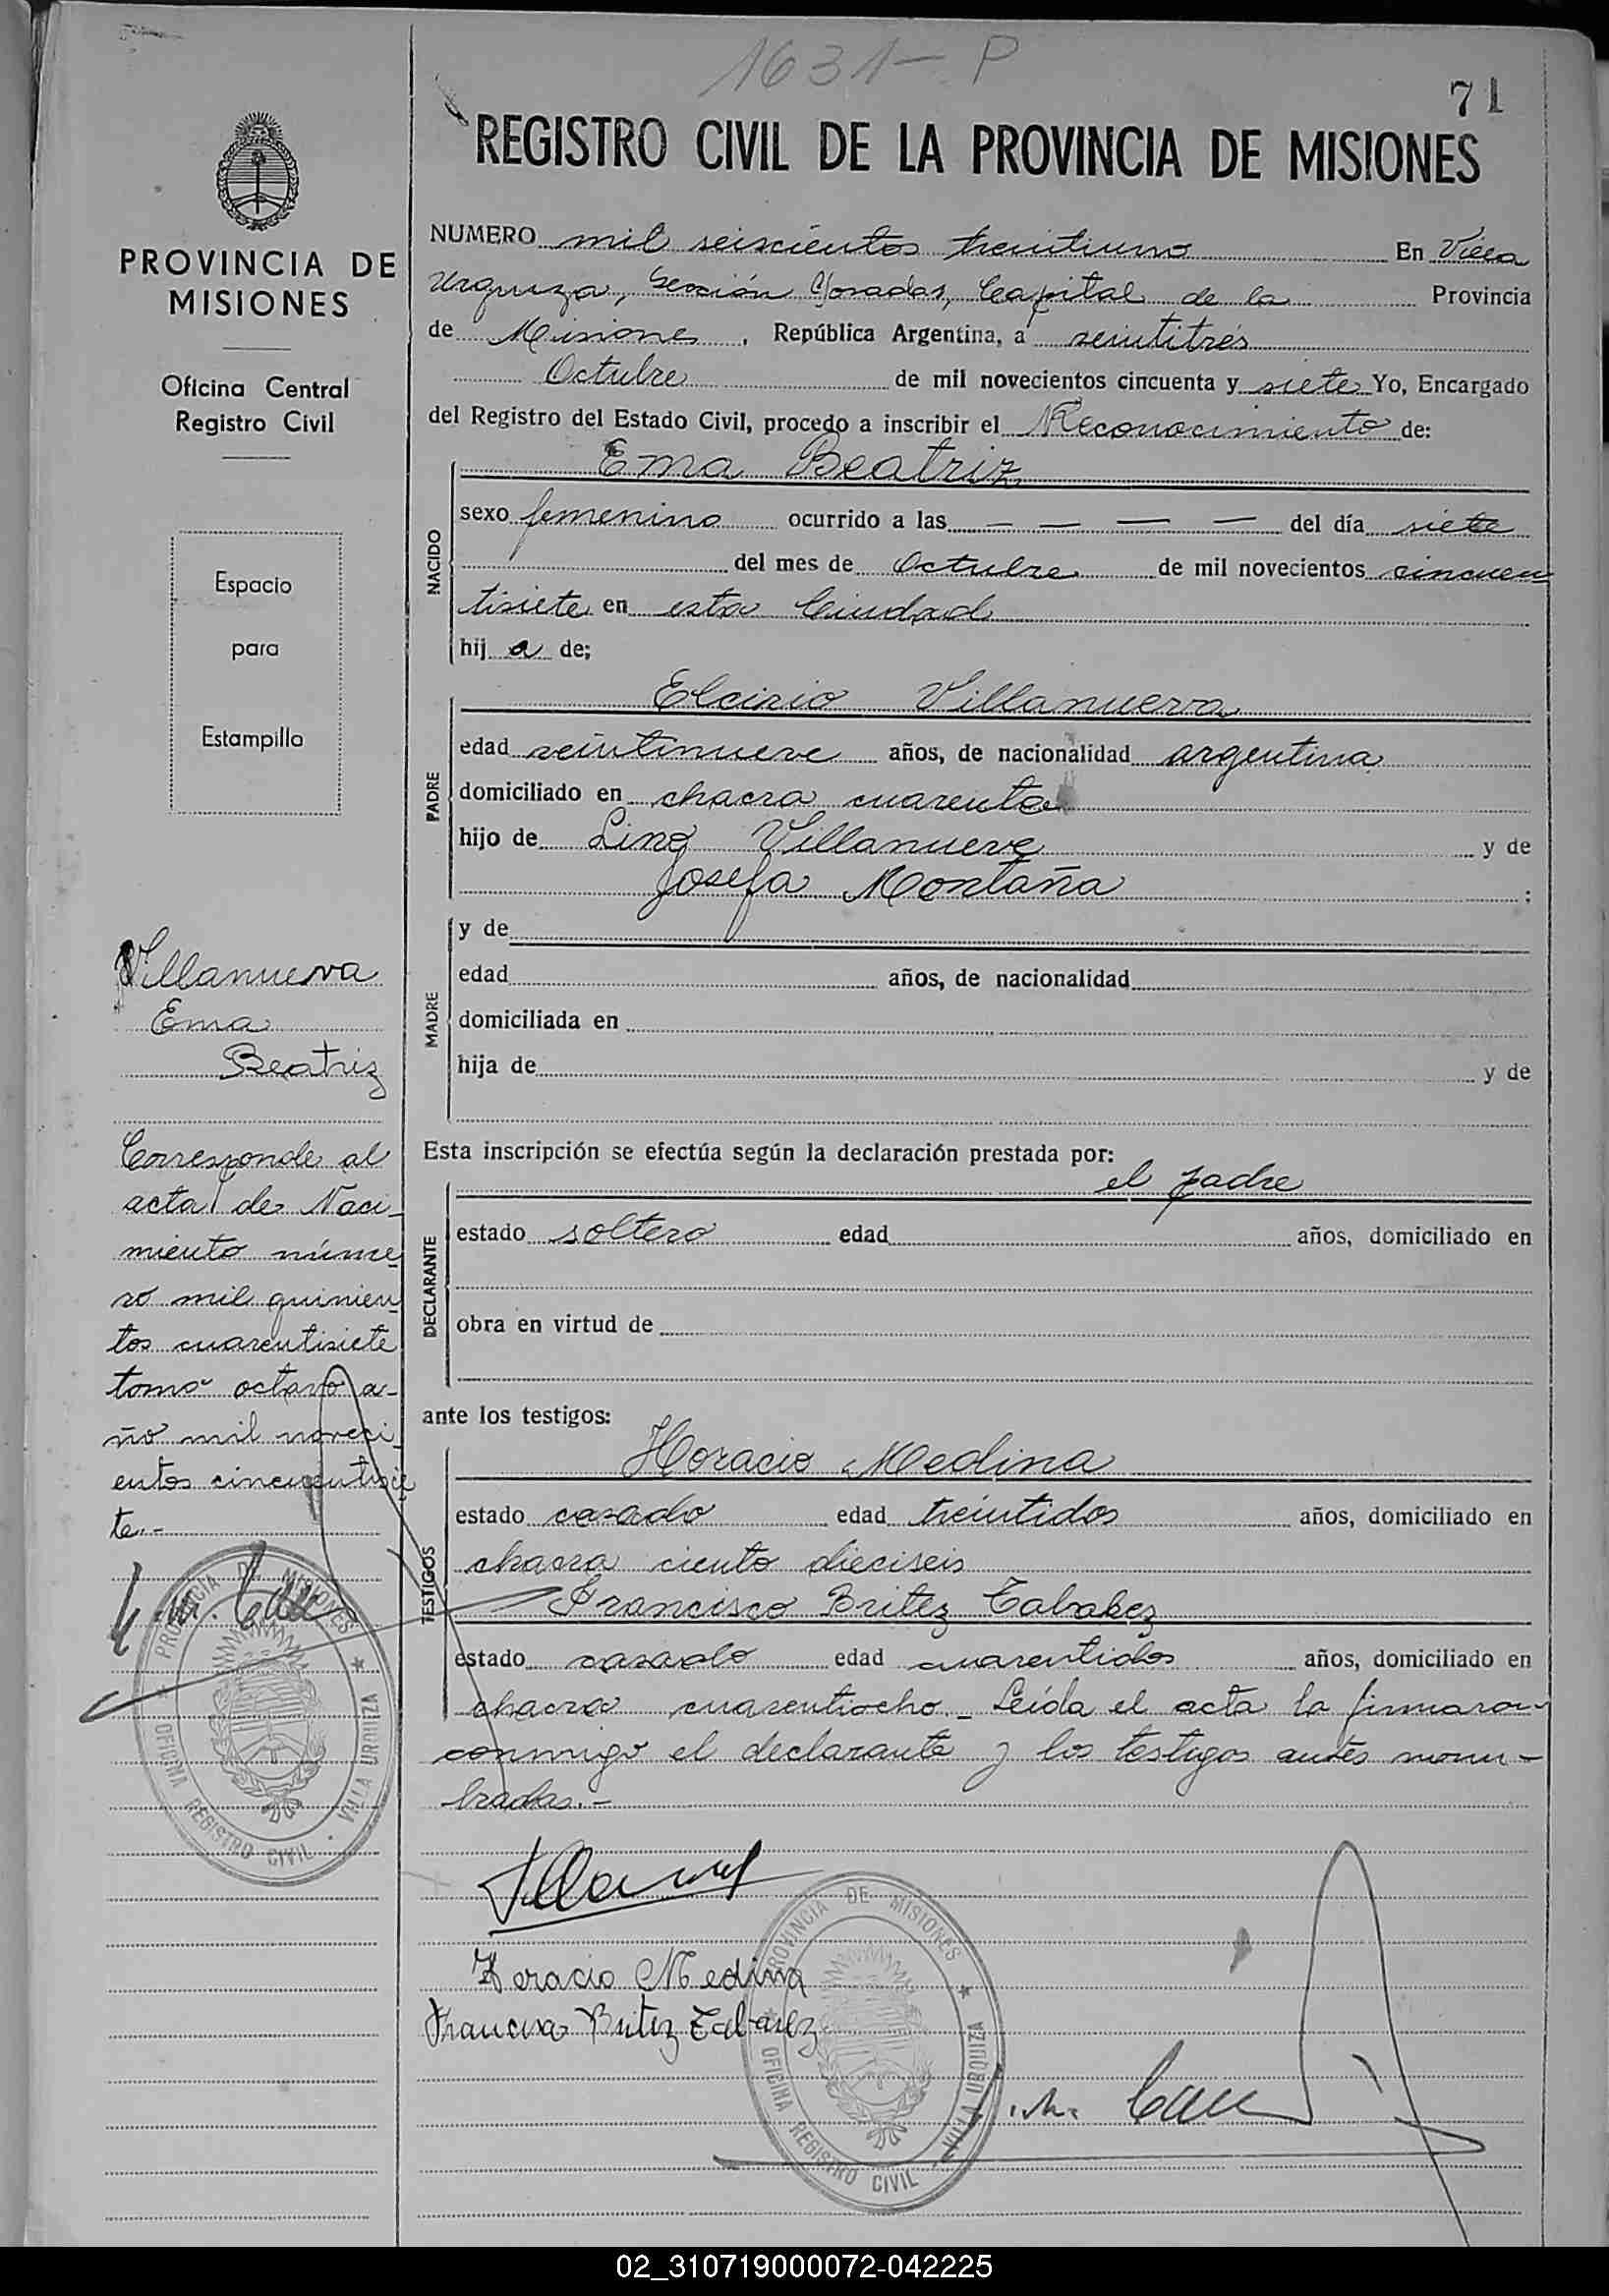 1631 - P
71
REGISTRO CIVIL DE LA PROVINCIA DE MISIONES
PROVINCIA DE
MISIONES
Oficina Central
Registro Civil
Espacio
para
Estampillo
Villanueva
Ema
Beatriz
Corresponde al
acta de Naci-
miento núme
ro mil quinien
tos cuarentisiete
tomo octavo a-
ño mil noveci
entos cincuentisie
te.-
PROVINCIA DE MISIONES
OFICINA REGISTRO CIVIL · VILLA URQUIZA
NUMERO mil seiscientos treintiuno En Villa
Urquiza, Sección Posadas, Capital de la Provincia
de Misiones, República Argentina, a veintitrés
Octubre de mil novecientos cincuenta y siete Yo, Encargado
del Registro del Estado Civil, procedo a inscribir el Reconocimiento de:
NACIDO
Ema Beatriz
sexo femenino ocurrido a las — — — — del día siete
del mes de Octubre de mil novecientos cincuen
tisiete en esta Ciudad
hij a de;
PADRE
Elcirio Villanueva
edad veintinueve años, de nacionalidad argentina
domiciliado en chacra cuarenta
hijo de Lino Villanueva y de
Josefa Montaña ;
MADRE
y de
edad años, de nacionalidad
domiciliada en
hija de y de
Esta inscripción se efectúa según la declaración prestada por:
DECLARANTE
el padre
estado soltero edad años, domiciliado en
obra en virtud de
ante los testigos:
TESTIGOS
Horacio Medina
estado casado edad treintidos años, domiciliado en
chacra ciento dieciseis
Francisco Britez Tababez
estado casado edad cuarentidos años, domiciliado en
chacra cuarentiocho.- Leída el acta la firmaron
conmigo el declarante y los testigos antes nom-
brados.-
Horacio Medina
Francisco Britez Tabarez
PROVINCIA DE MISIONES
OFICINA REGISTRO CIVIL · VILLA URQUIZA
02_310719000072-042225